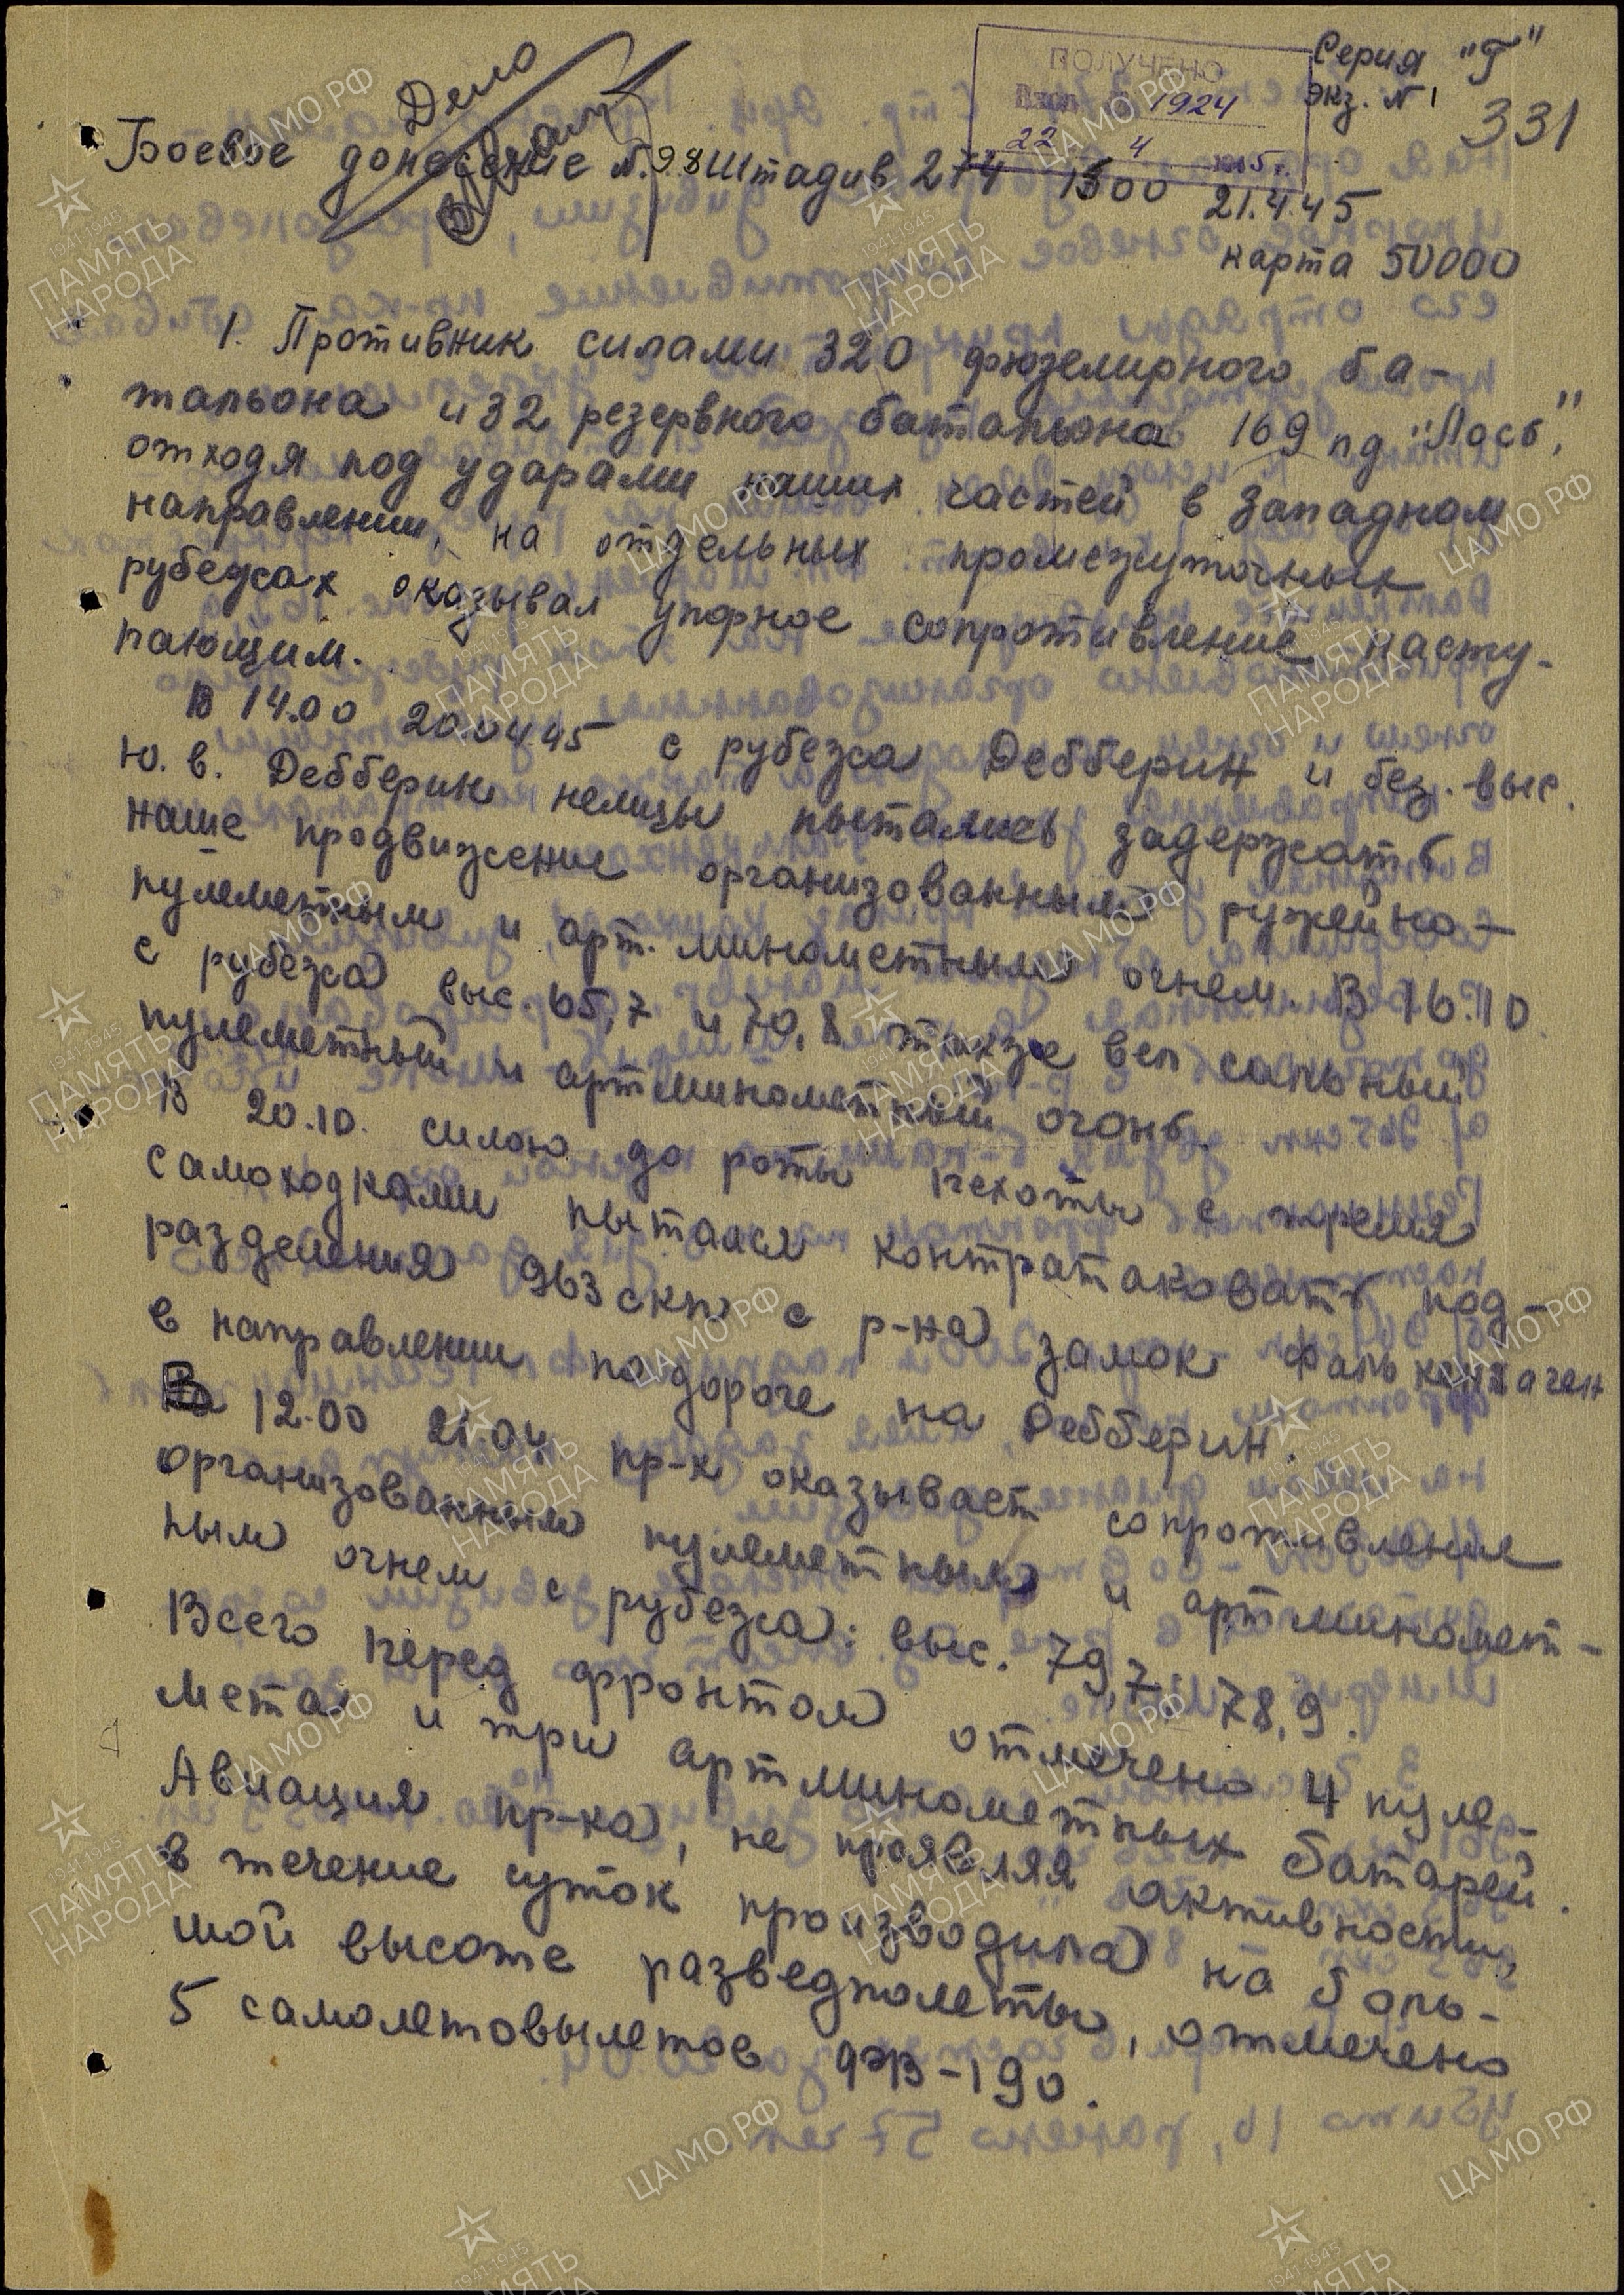 Серия "Г"
экз. № 1
331
ПОЛУЧЕНО
Вход. 1924
22 4 1945 г.
Дело
Боевое донесение №.98 Штадив 274 1500 21.4.45
карта 50000
1. Противник силами 320 фюзелирного ба-
тальона и 32 резервного батальона 169 пд "Лось",
отходя под ударами наших частей в западном
направлении, на отдельных промежуточных
рубежах оказывал упорное сопротивление насту-
пающим.
В 14.00 20.04.45 с рубежа Дебберин и без. выс.
ю. в. Дебберин немцы пытались задержать
наше продвижение организованным ружейно-
пулеметным и арт. минометным огнем. В 16.10
с рубежа выс. 65,7 и 70,8 также вел сильный
пулеметный и артминометный огонь.
В 20.10. силою до роты пехоты с тремя
самоходками пытался контратаковать под-
разделения 963 скп с р-на замок Фалькенхаген
в направлении по дороге на Дебберин.
В 12.00 21.04 пр-к оказывает сопротивление
организованным пулеметным и артминомет-
ным огнем с рубежа: выс. 79,7 78,9.
Всего перед фронтом отмечено 4 пуле-
мета и три артминометных батарей.
Авиация пр-ка, не проявляя активности
в течение суток производила на боль-
шой высоте разведполеты, отмечено
5 самолетовылетов ФВ-190.